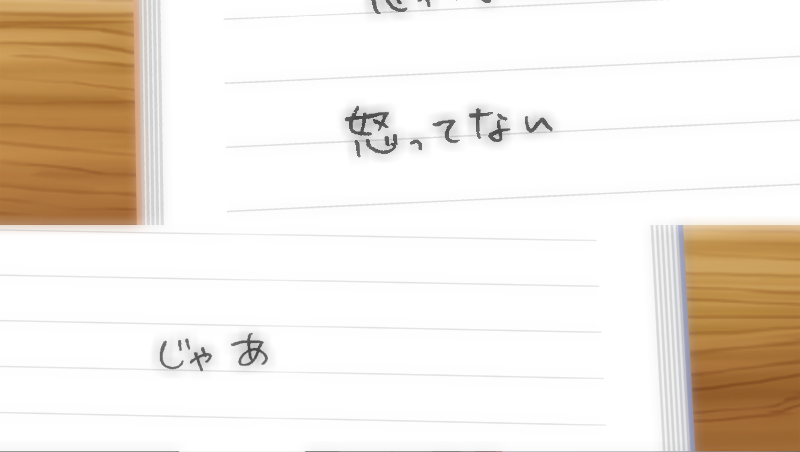 怒ってない
じゃあ